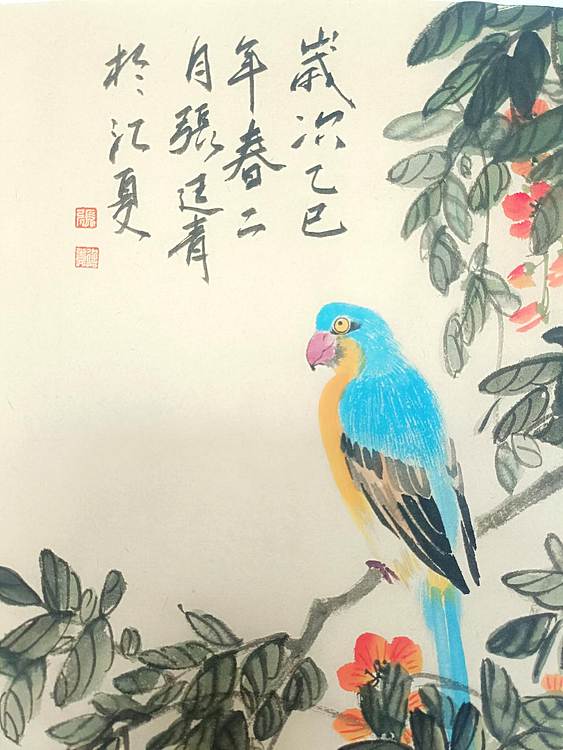 歲次乙巳
年春二
月張廷青
於江夏
張